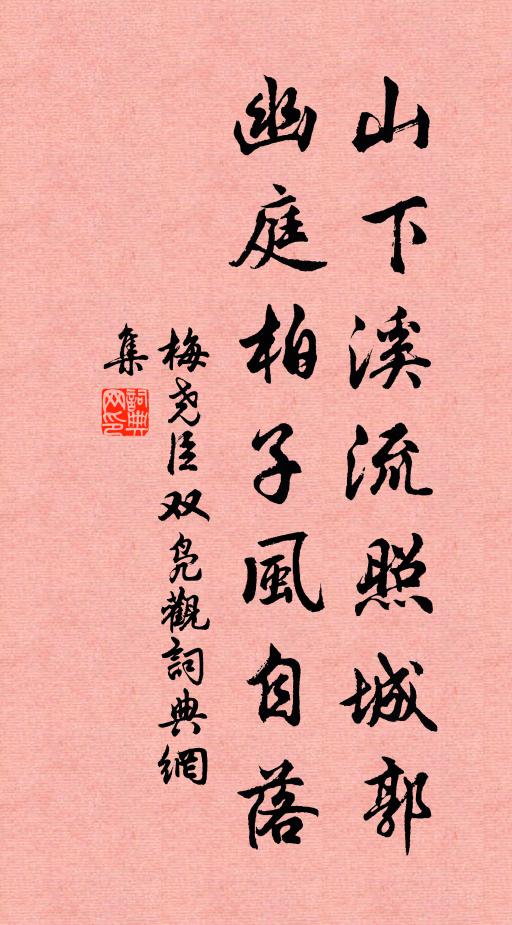 山下溪流照城郭
幽庭柏子風自落
梅尧臣双凫觀詞典網
集
詞典网印